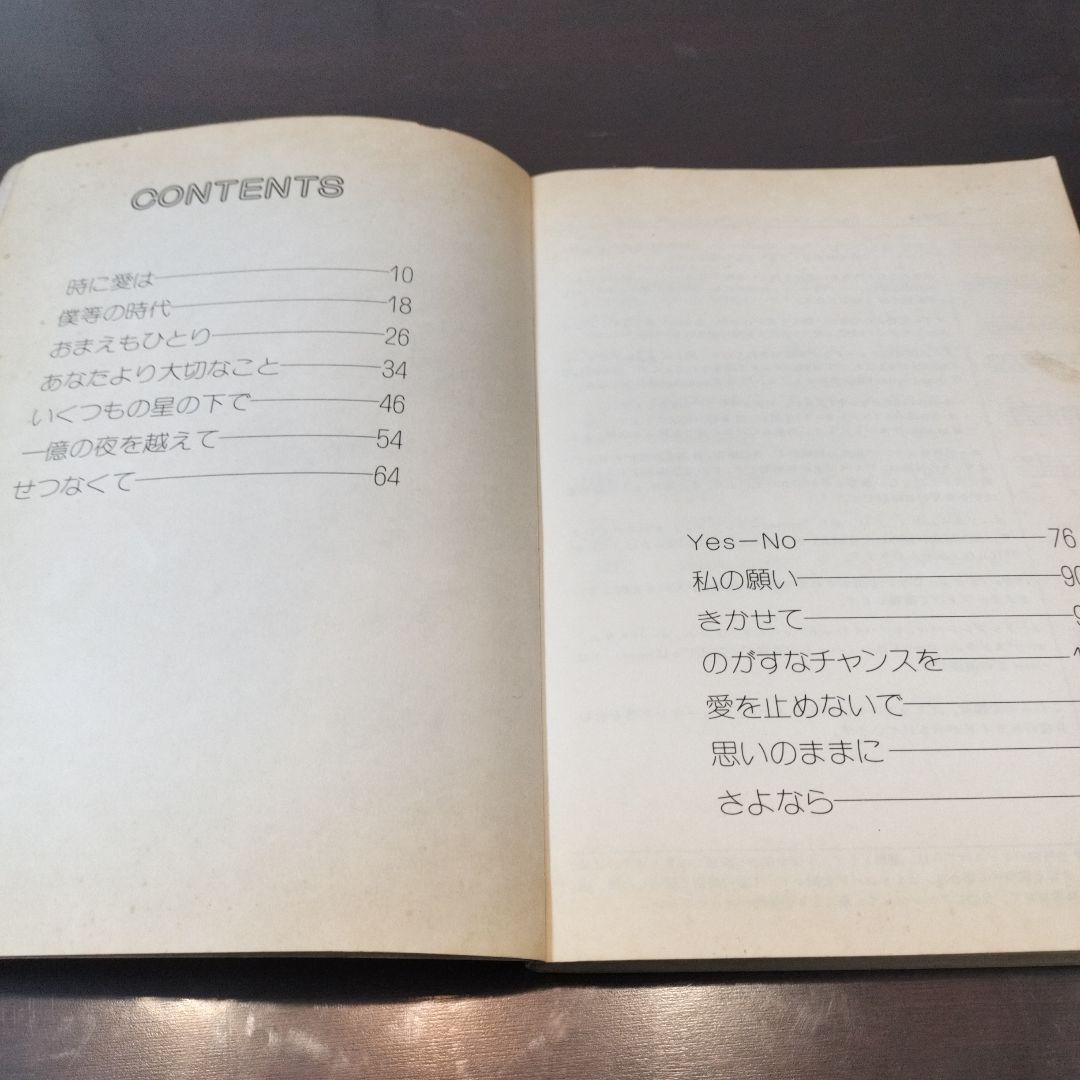 CONTENTS
時に愛は 10
僕等の時代 18
おまえもひとり 26
あなたより大切なこと 34
いくつもの星の下で 46
一億の夜を越えて 54
せつなくて 64
Yes-No 76
私の願い 90
きかせて
のがすなチャンスを
愛を止めないで
思いのままに
さよなら